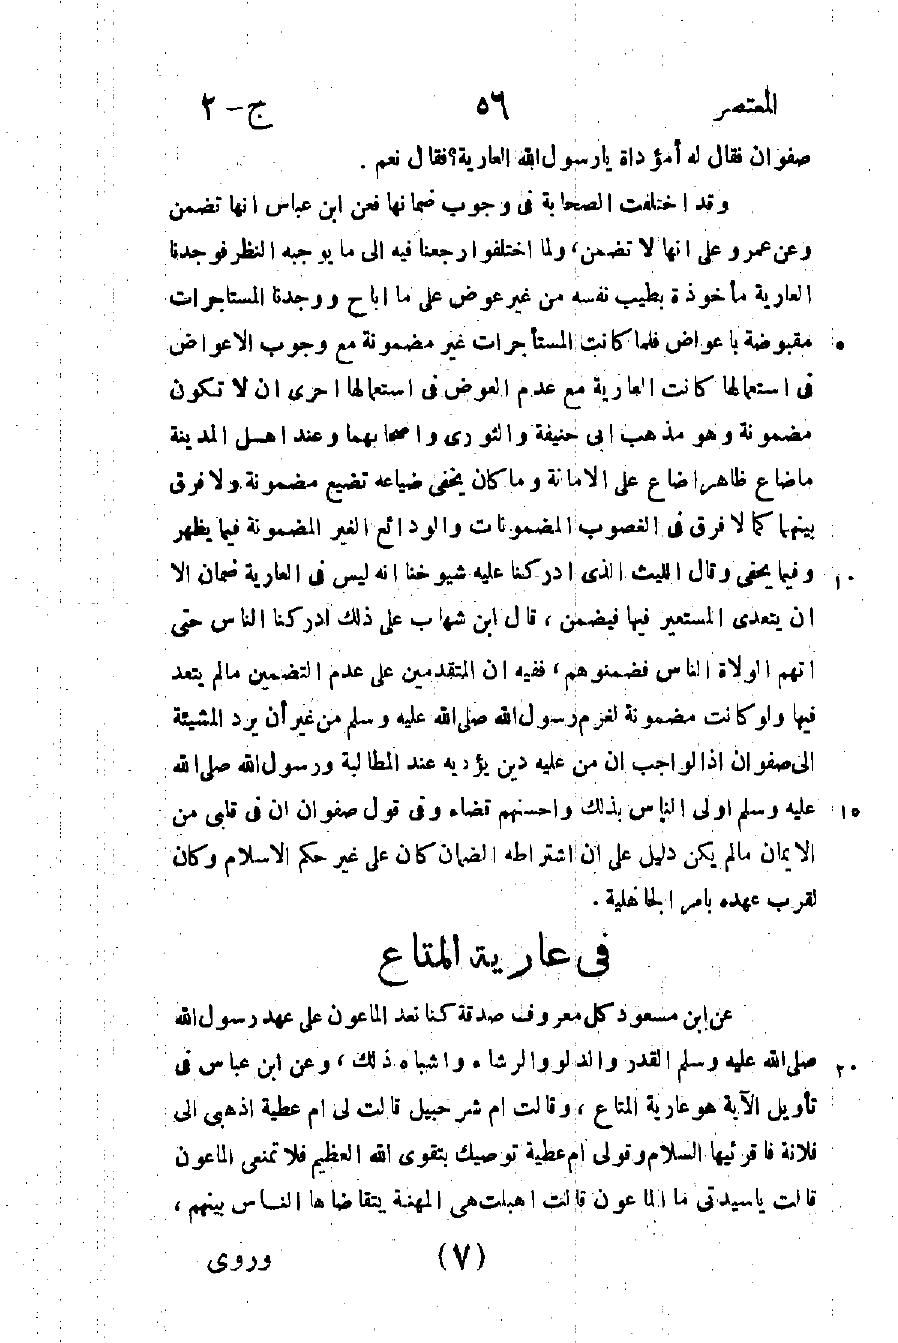 المعتصر ٥٦ ج-٢
صفوان فقال له أمؤداة يارسول الله العارية؟ فقال نعم .
وقد اختلفت الصحابة فى وجوب ضمانها فعن ابن عباس انها تضمن
وعن عمر وعلى انها لا تضمن، ولما اختلفوا رجعنا فيه الى ما يوجبه النظر فوجدنا
العارية مأخوذة بطيب نفسه من غير عوض على ما اباح ووجدنا المستاجرات
مقبوضة باعواض فلما كانت المستأجرات غير مضمونة مع وجوب الاعواض ٥
فى استعمالها كانت العارية مع عدم العوض فى استعمالها احرى ان لا تكون
مضمونة وهو مذهب ابى حنيفة والثورى واصحابهما وعند اهل المدينة
ماضاع ظاهرا ضاع على الامانة وما كان يخفى ضياعه تضيع مضمونة ولا فرق
بينهما كما لا فرق فى الغصوب المضمونات والودائع الغير المضمونة فيما يظهر
وفيما يخفى وقال الليث الذى ادركنا عليه شيوخنا انه ليس فى العارية ضمان الا ١٠
ان يتعدى المستعير فيها فيضمن ، قال ابن شهاب على ذلك ادركنا الناس حتى
اتهم الولاة الناس فضمنوهم، ففيه ان المتقدمين على عدم التضمين مالم يتعد
فيها ولو كانت مضمونة لغرم رسول الله صلى الله عليه وسلم من غير أن يرد المشيئة
الى صفوان اذ الواجب ان من عليه دين يؤديه عند المطالبة ورسول الله صلى الله
عليه وسلم اولى الناس بذلك واحسنهم قضاء وفى قول صفوان ان فى قلبى من ١٥
الايمان مالم يكن دليل على ان اشتراطه الضمان كان على غير حكم الاسلام وكان
لقرب عهده بامر الجاهلية .
فى عارية المتاع
عن ابن مسعود كل معروف صدقة كنا نعد الماعون على عهد رسول الله
صلى الله عليه وسلم القدر والدلو والرشاء واشباه ذلك ، وعن ابن عباس فى ٢٠
تأويل الآية هو عارية المتاع ، وقالت ام شرحبيل قالت لى ام عطية اذهبى الى
فلانة فاقرئيها السلام وقولى ام عطية توصيك بتقوى الله العظيم فلا تمنعى الماعون
قالت ياسيدتى ما الماعون قالت اهبلت هى المهنة يتقاضاها الناس بينهم ،
(٧) وروى